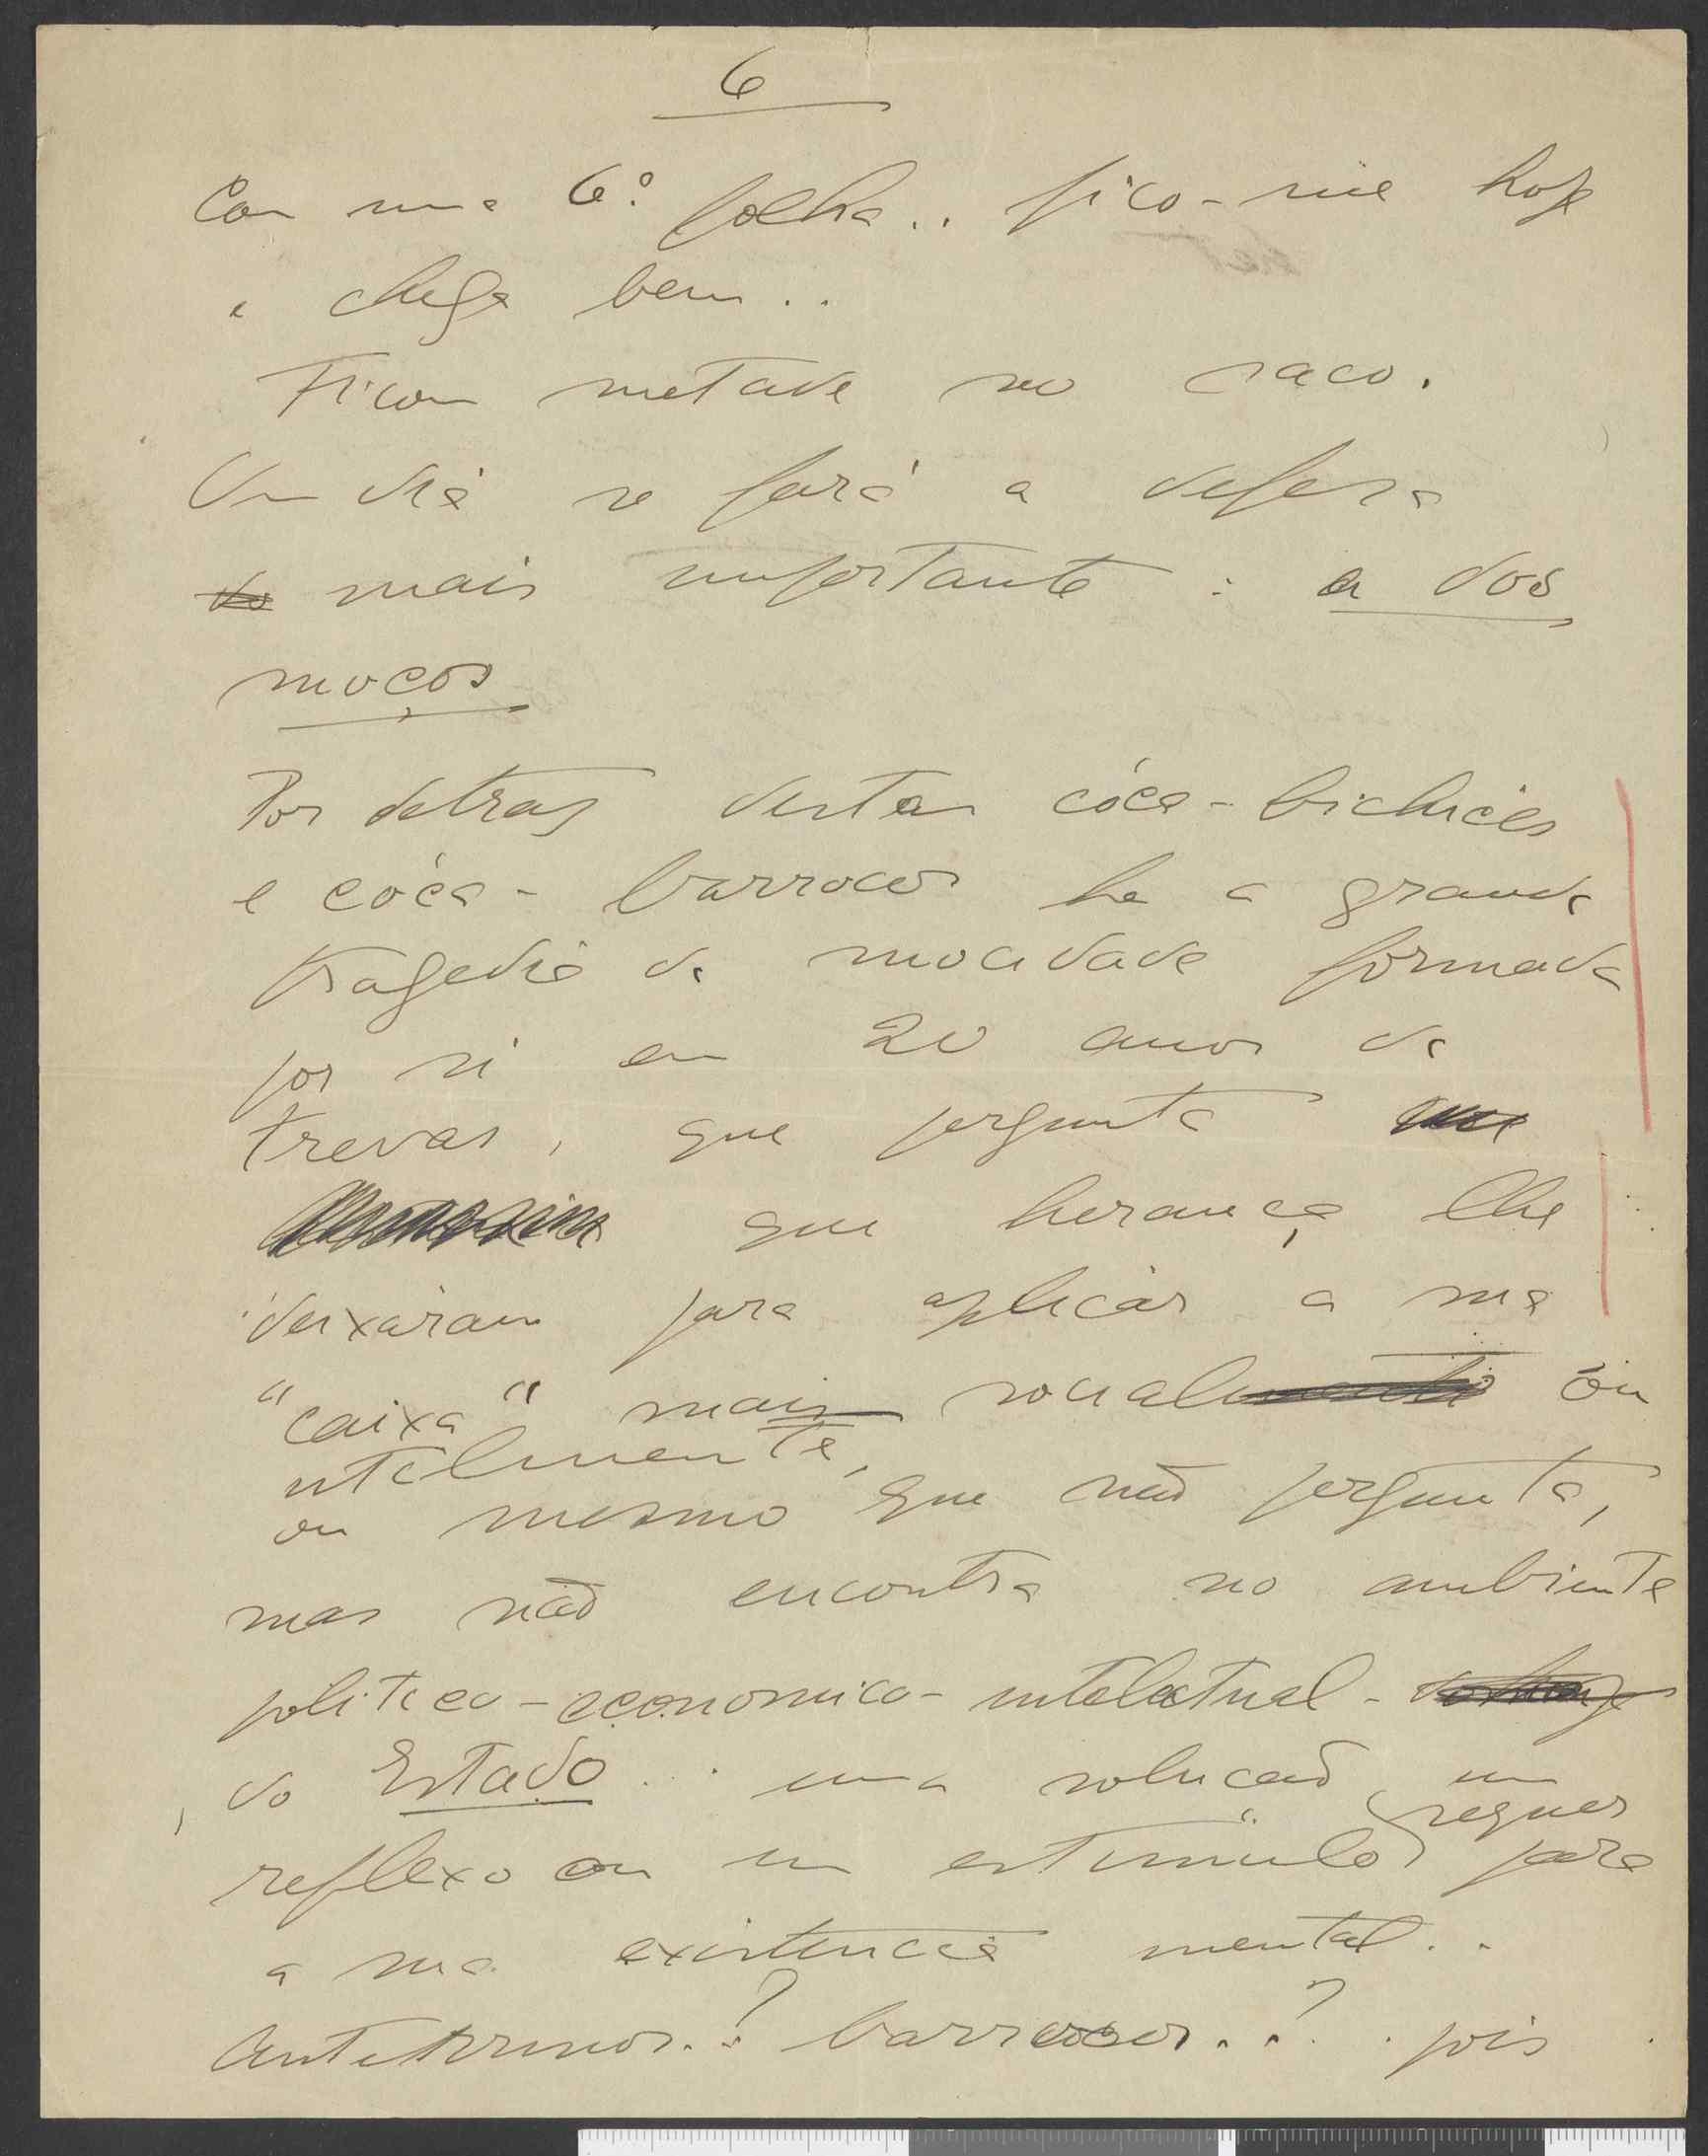 6
Com uma 6º folha.. fico-me hoje
e chega bem..
Ficou metade no saco.
Um dia se fará a defesa
mais importante : a dos
moços
Por detras destas cóca-bichices
e cóca-barrocos ha a grande
tragedia da mocidade formada
por si em 20 anos de
trevas, que pergunta
que herança lhe
deixaram para aplicar a sua
"caixa" mais social ou
utilmente,
ou mesmo que não pergunta,
mas não encontra no ambiente
politico-economico-intelectual-
do Estado ... uma solução, um
reflexo ou um estimulo sequer
para
a sua existencia mental..
barrocos..? . pois